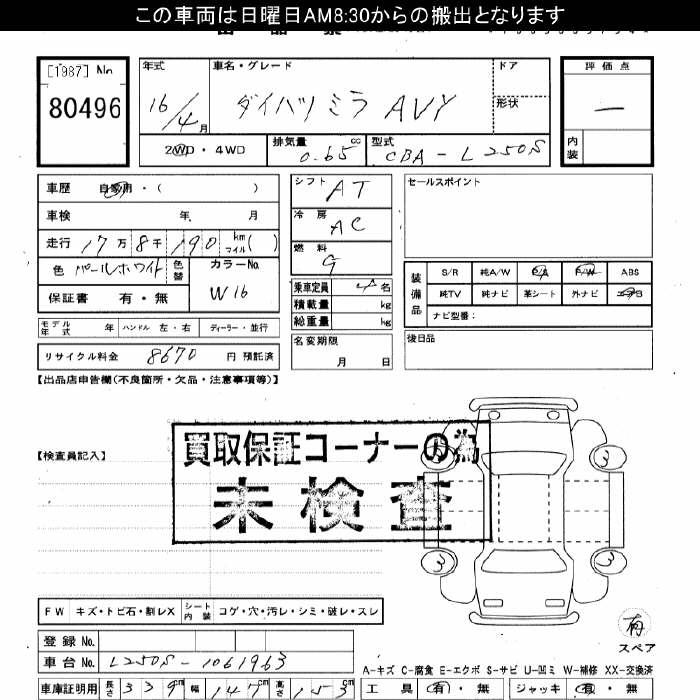 この車両は日曜日AM8:30からの搬出となります
[1987] No
80496
年式
16/4月
車名・グレード
ダイハツ ミラ AVY
ドア
形状
評価点
—
内装
2WD・4WD
排気量
0.65 cc
型式
CBA-L250S
車歴 自家用・( )
車検 年 月
走行 17万8千190 km マイル ( )
色 パールホワイト 色替
カラーNo. W16
保証書 有・無
シフト AT
冷房 AC
燃料 G
乗車定員 4名
積載量 kg
総重量 kg
セールスポイント
装備品
S/R 純A/W P/S P/W ABS
純TV 純ナビ 革シート 外ナビ エアB
ナビ型番:
モデル年式 年 ハンドル 左・右 ディーラー・並行
名変期限 月 日
後日品
リサイクル料金 8670 円 預託済
【出品店申告欄(不良箇所・欠品・注意事項等)】
【検査員記入】
買取保証コーナーの為
未検査
3
3
3
FW キズ・トビ石・割レX シート内装 コゲ・穴・汚レ・シミ・破レ・スレ
有
スペア
登録 No.
車台 No. L250S-1061963
A-キズ C-腐食 E-エクボ S-サビ U-凹ミ W-補修 XX-交換済
車庫証明用 長さ 339cm 幅 147cm 高さ 153cm
工具 有・無 ジャッキ 有・無